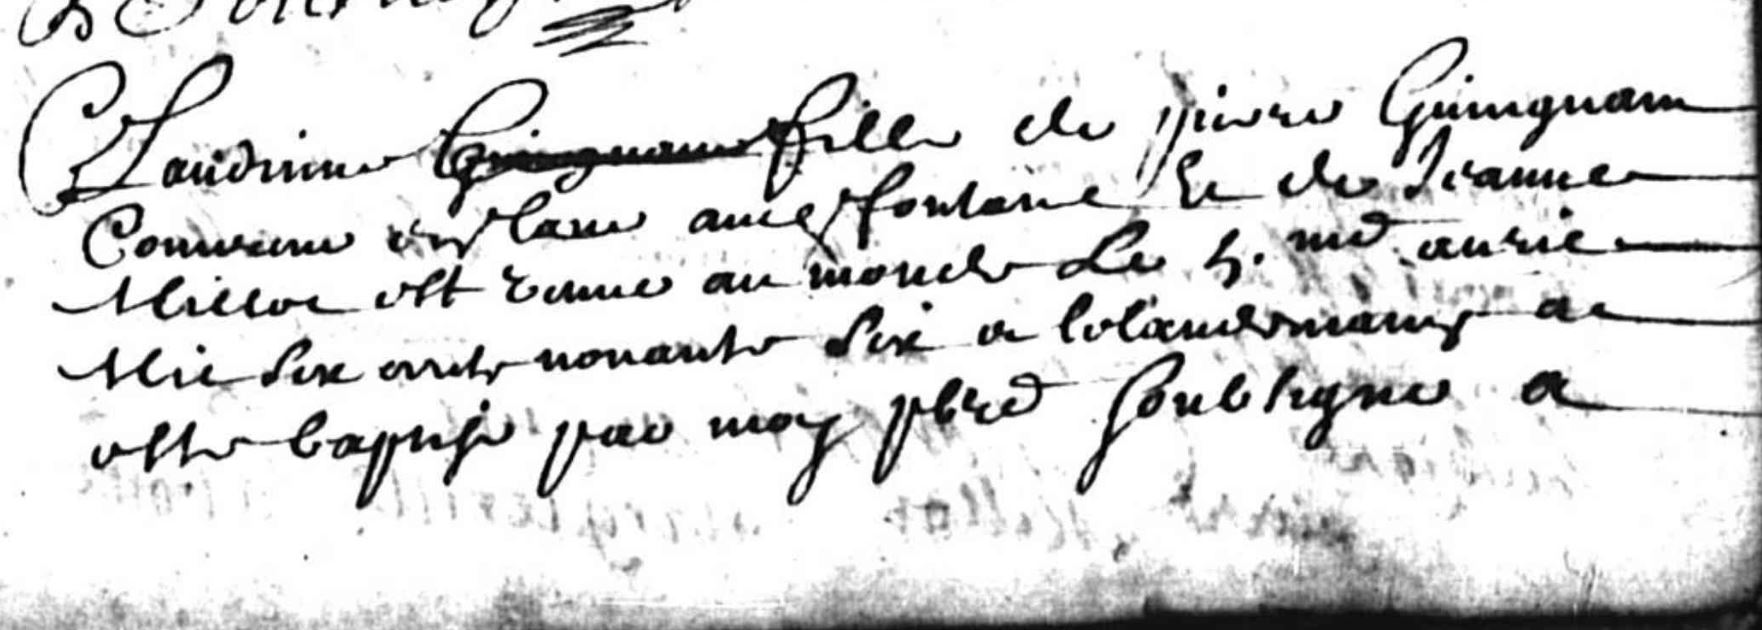 Claudinne Guingnam fille de pierre Guingnam
Couureur en laue aux fontaine & de Jeanne
Millot est venue au monde Le 5. me auril
Mil six cents nonante six a lolandemains a
este baptise par moy pbre soubsigne a